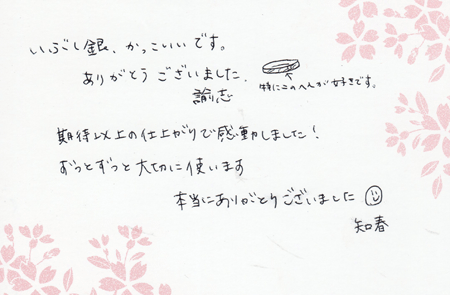 いぶし銀、かっこいいです。
ありがとうございました。
特にこのへんが好きです。
諭志
期待以上の仕上がりで感動しました!
ずっとずっと大切に使います
本当にありがとうございました
知春